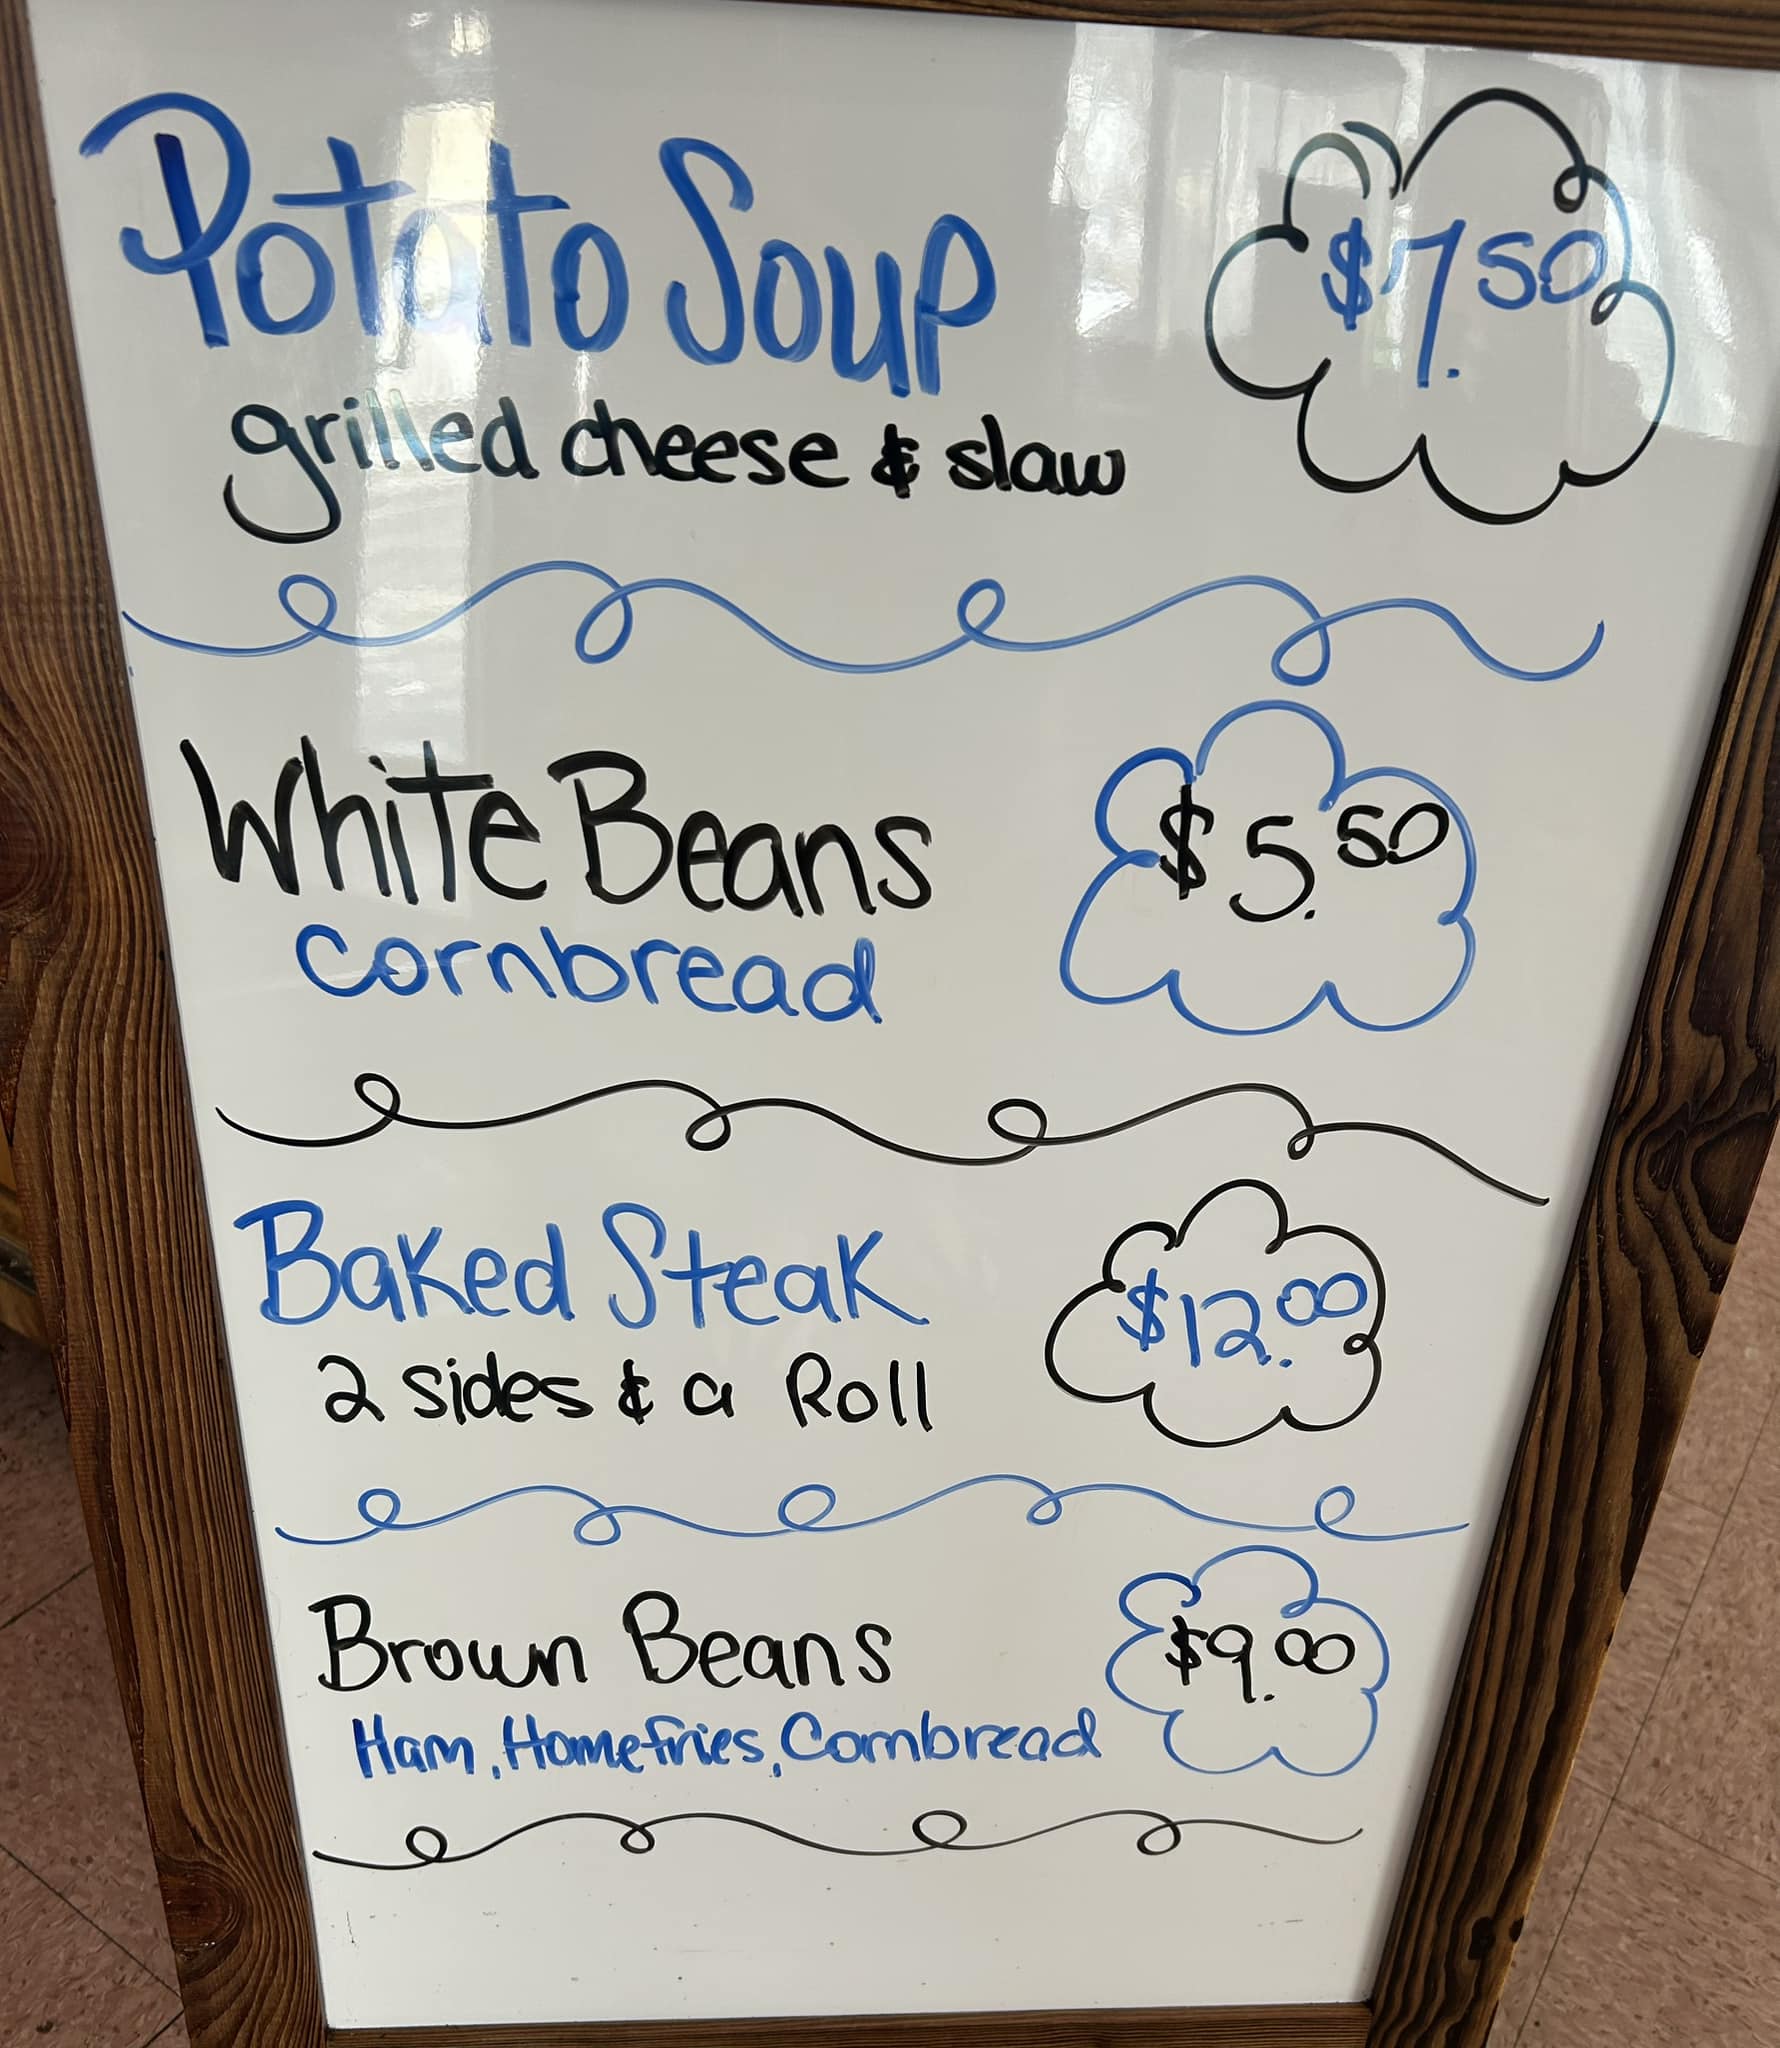 Potato Soup $7.50
grilled cheese & slaw
White Beans $5.50
cornbread
Baked Steak $12.00
2 sides & a Roll
Brown Beans $9.00
Ham, Homefries, Cornbread